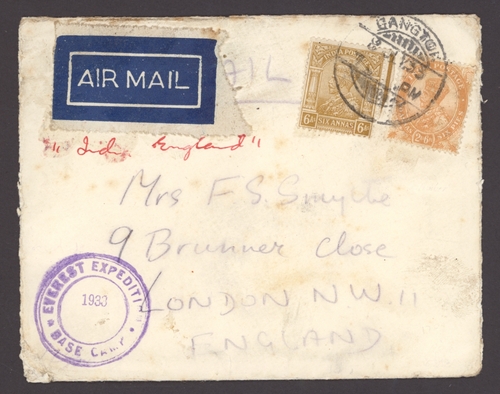 AIR MAIL
AIL
6As SIX ANNAS 6As
GANGTOK
" India England "
Mrs F S. Smythe
9 Brunner Close
LONDON, N.W. 11
ENGLAND
EVEREST EXPEDITION
1933
BASE CAMP